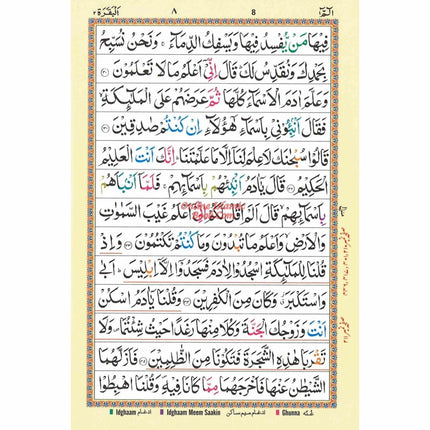 البقرة ٢ ٨ 8 الٓمّٓ ١
فِيْهَا مَنْ يُّفْسِدُ فِيْهَا وَيَسْفِكُ الدِّمَآءَ ۚ وَنَحْنُ نُسَبِّحُ
بِحَمْدِكَ وَنُقَدِّسُ لَكَ ؕ قَالَ اِنِّيْۤ اَعْلَمُ مَا لَا تَعْلَمُوْنَ ﴿۳۰﴾
وَعَلَّمَ اٰدَمَ الْاَسْمَآءَ كُلَّهَا ثُمَّ عَرَضَهُمْ عَلَى الْمَلٰٓئِكَةِ ۙ
فَقَالَ اَنْۢبِـُٔوْنِيْ بِاَسْمَآءِ هٰۤؤُلَآءِ اِنْ كُنْتُمْ صٰدِقِيْنَ ﴿۳۱﴾
قَالُوْا سُبْحٰنَكَ لَا عِلْمَ لَنَاۤ اِلَّا مَا عَلَّمْتَنَا ؕ اِنَّكَ اَنْتَ الْعَلِيْمُ
الْحَكِيْمُ ﴿۳۲﴾ قَالَ يٰۤاٰدَمُ اَنْۢبِئْهُمْ بِاَسْمَآئِهِمْ ۚ فَلَمَّاۤ اَنْۢبَاَهُمْ
بِاَسْمَآئِهِمْ ۙ قَالَ اَلَمْ اَقُلْ لَّكُمْ اِنِّيْۤ اَعْلَمُ غَيْبَ السَّمٰوٰتِ
وَالْاَرْضِ ۙ وَاَعْلَمُ مَا تُبْدُوْنَ وَمَا كُنْتُمْ تَكْتُمُوْنَ ﴿۳۳﴾ وَاِذْ
قُلْنَا لِلْمَلٰٓئِكَةِ اسْجُدُوْا لِاٰدَمَ فَسَجَدُوْۤا اِلَّاۤ اِبْلِيْسَ ؕ اَبٰى
وَاسْتَكْبَرَ ؗ وَكَانَ مِنَ الْكٰفِرِيْنَ ﴿۳۴﴾ وَقُلْنَا يٰۤاٰدَمُ اسْكُنْ
اَنْتَ وَزَوْجُكَ الْجَنَّةَ وَكُلَا مِنْهَا رَغَدًا حَيْثُ شِئْتُمَا ۪ وَلَا
تَقْرَبَا هٰذِهِ الشَّجَرَةَ فَتَكُوْنَا مِنَ الظّٰلِمِيْنَ ﴿۳۵﴾ فَاَزَلَّهُمَا
الشَّيْطٰنُ عَنْهَا فَاَخْرَجَهُمَا مِمَّا كَانَا فِيْهِ ۪ وَقُلْنَا اهْبِطُوْا
Idghaam ادغام Idghaam Meem Saakin ادغام میم ساکن Ghunna غنہ